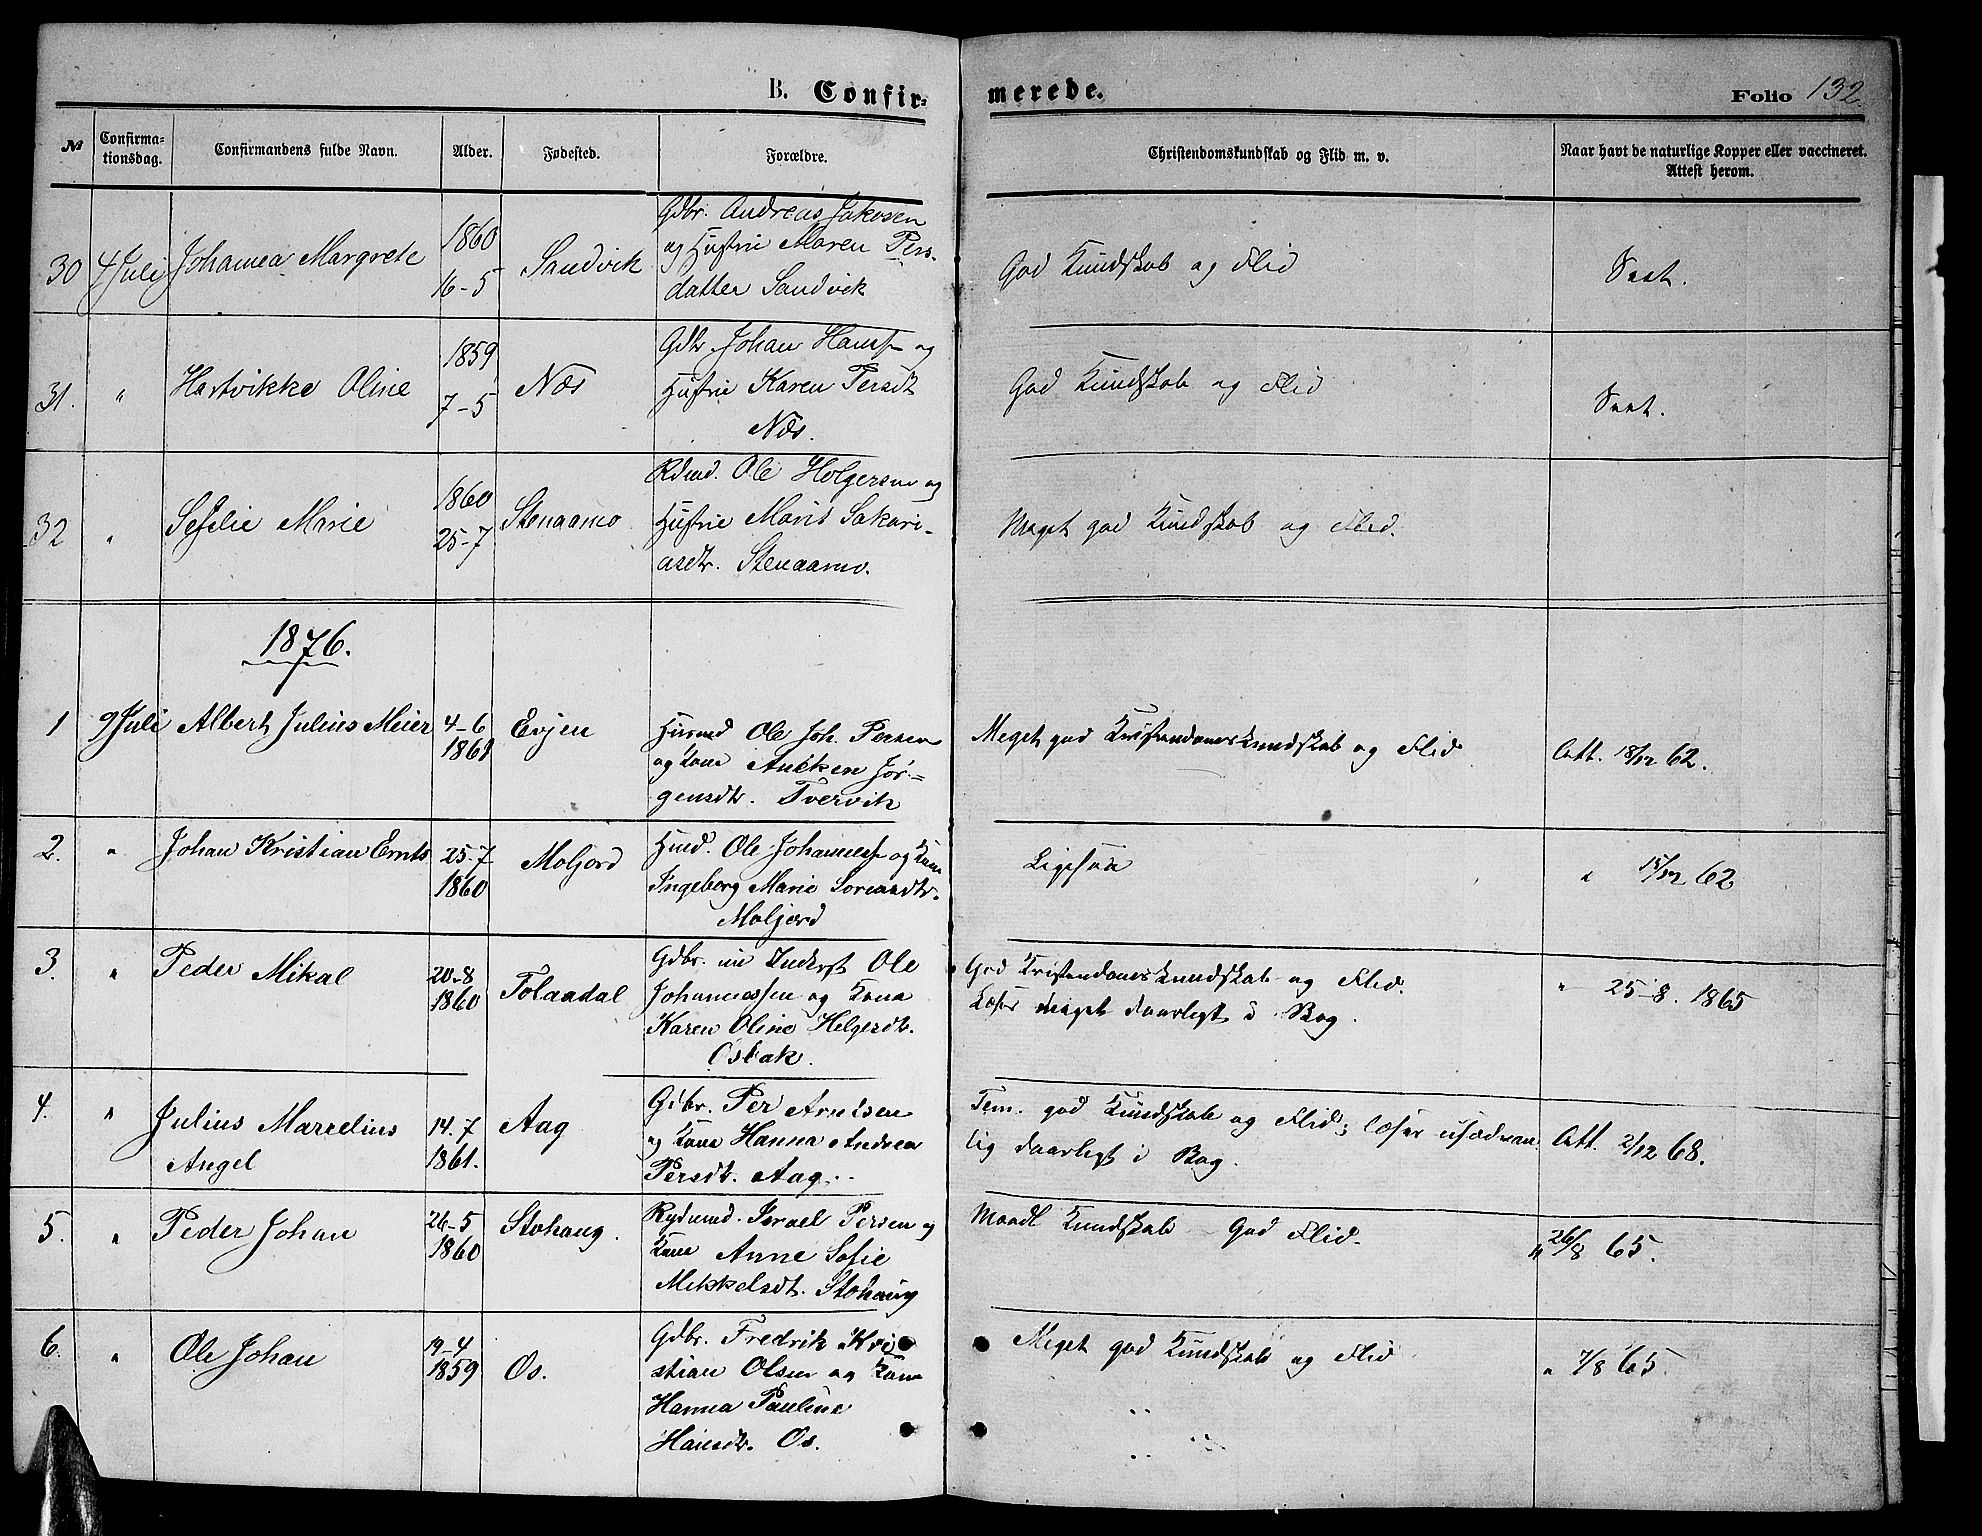 B. Confir-
merede.
Folio 132.
№
Confirma-
tionsdag.
Confirmandens fulde Navn.
Alder.
Fødested.
Forældre.
Christendomskundskab og Flid m. v.
Naar havt de naturlige Kopper eller vaccineret.
Attest herom.
30 4 Juli Johanna Margrete 1860 16-5 Sandvik
Gdbr. Andreas Jakosen
og Hustrie Maren Pers-
datter Sandvik
God Kundskab og Flid
Seet.
31. " Hartvikke Oline 1859 7-5 Næs
Gdbr Johan Hanss og
Hustrie Karen Persdt
Næs.
God Kundskab og Flid
Seet.
32 " Sefelie Marie 1860 25-7 Stenaamo
Rdmd. Ole Holgersen og
Hustrie Marit Sakari-
asdtr. Stenaamo.
Meget god Kundskab og Flid.
1876.
1 9 Juli Albert Julius Meier 4-6 1861 Evjen
Husmd Ole Joh. Persen
og Kone Anken Jør-
gensdtr. Tvervik
Meget god Kristendomskundskab og Flid
Att. 18/12 62.
2. " Johan Kristian Ernts 25-7 1860 Moljord
Hmd. Ole Johanness og Kone
Ingeborg Marie Sorensdtr.
Moljord
Ligesaa
" 15/12 62
3. " Peder Mikal 20-8 1860 Tolaadal
Gdbr. nu Inderst Ole
Johannessen og Kone
Karen Oline Helgerdt.
Osbak.
God Kristendomskundskab og Flid.
Læser meget daarligt i Bog.
" 25-8. 1865
4. " Julius Marcelius 14-7 1861. Aag
Angel
Gdbr. Per Arntsen
og Kone Hanna Andrea
Persdt. Aag.
Tem. god Kundskab og Flid; læser usædvan
lig daarligt i Bog.
Att. 2/12 68.
5. " Peder Johan 26-5 1860 Stohaug.
Rydmd. Israel Persen og
Kone Anne Sofie
Mikkelsdt. Stohaug
Maadl Kundskab God Flid.
" 26/8 65.
6. " Ole Johan 19-4 1859 Os.
Gdbr. Fredrik Kri
stian Olsen og Kone
Hanna Pauline
Hansdtr. Os.
Meget god Kundskab og Flid
" 7/8 65.